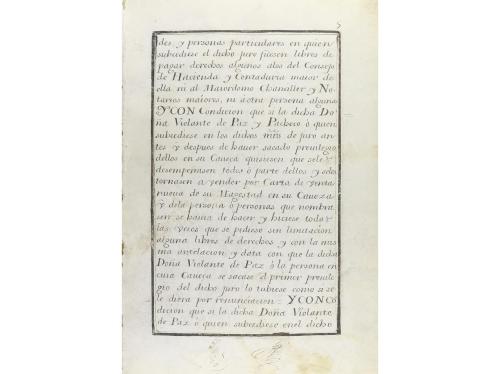 des y personas particulares en quien
subcediese el dicho juro fuesen libres de
pagar derechos algunos alos del Consejo
de Hacienda y Contaduria maior de
ella ni al Maiordomo Chanciller y No
tarios maiores, ni a otra persona alguna
YCON Condicion que si la dicha Do
ña Violante de Paz y Pacheco ò quien
subcediese en los dichos mrs̃ de juro an
tes y despues de hauer sacado preuilegio
dellos en su Caueça quisiesen que sele
desempeñasen todos ò parte dellos y seles
tornasen a vender por Carta de venta
nueua de su Magestad en su Caueza
y dela persona ò personas que nombra
sen se hauia de hacer y hiciese todas
las veces que se pidiese sin limitacion
alguna libres de derechos y con la mis
ma antelacion y data con que la dicha
Doña Violante de Paz ò la persona en
cuia Caueca se sacase el primer preuile
gio del dicho juro lo tubiese como si se
le diera por renunciacion = YCON Co
dicion que si la dicha Doña Violante
de Paz ò quien subcediese en el dicho